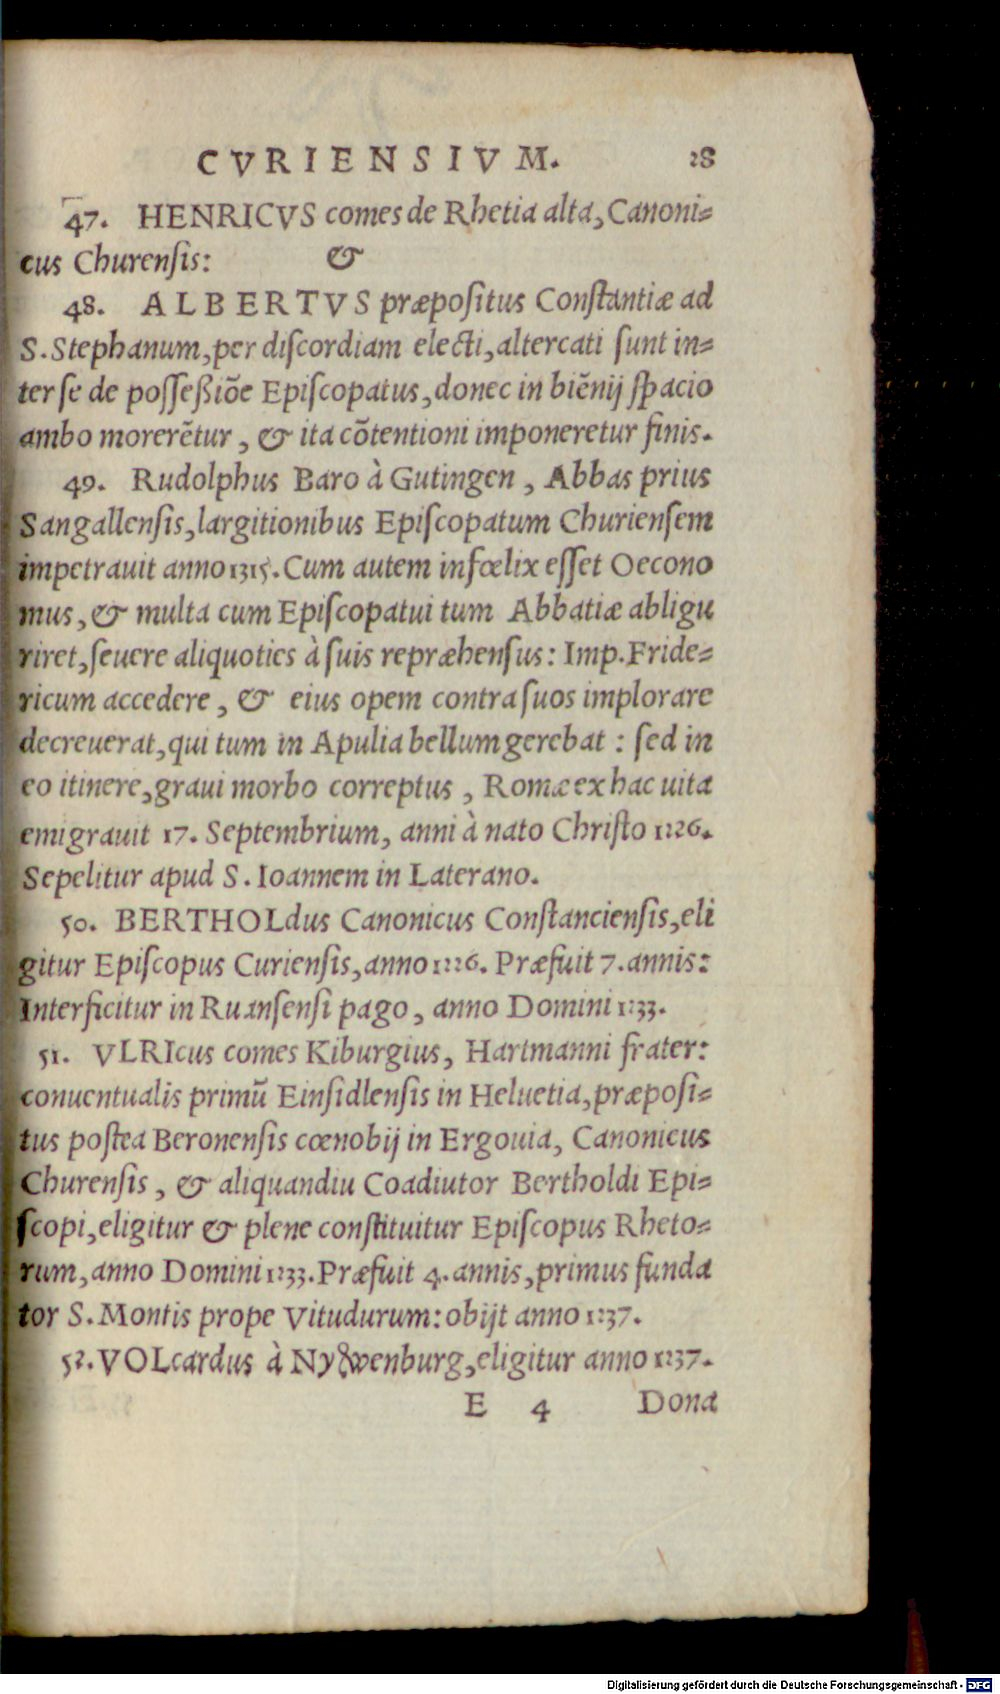 CVRIENSIVM. 28
47. HENRICVS comes de Rhetia alta, Canoni-
cus Churensis: &
48. ALBERTVS præpositus Constantiæ ad
S. Stephanum, per discordiam electi, altercati sunt in-
ter se de possessiõe Episcopatus, donec in biẽnij spacio
ambo morerẽtur, & ita cõtentioni imponeretur finis.
49. Rudolphus Baro à Gutingen, Abbas prius
Sangallensis, largitionibus Episcopatum Churiensem
impetrauit anno 1315. Cum autem infœlix esset Oecono
mus, & multa cum Episcopatui tum Abbatiæ abligu
riret, seuere aliquoties à suis repræhensus: Imp. Fride-
ricum accedere, & eius opem contra suos implorare
decreuerat, qui tum in Apulia bellum gerebat: sed in
eo itinere, graui morbo correptus, Romæ ex hac uita
emigrauit 17. Septembrium, anni à nato Christo 1226.
Sepelitur apud S. Ioannem in Laterano.
50. BERTHOLdus Canonicus Constanciensis, eli
gitur Episcopus Curiensis, anno 1226. Præfuit 7. annis:
Interficitur in Ruansensi pago, anno Domini 1233.
51. VLRIcus comes Kiburgius, Hartmanni frater:
conuentualis primũ Einsidlensis in Heluetia, præposi-
tus postea Beronensis cœnobij in Ergouia, Canonicus
Churensis, & aliquandiu Coadiutor Bertholdi Epi-
scopi, eligitur & plene constituitur Episcopus Rheto-
rum, anno Domini 1233. Præfuit 4. annis, primus funda
tor S. Montis prope Vitudurum: obijt anno 1237.
52. VOLcardus à eligitur anno 1237.
E 4 Dona
Digitalisierung gefördert durch die Deutsche Forschungsgemeinschaft - DFG